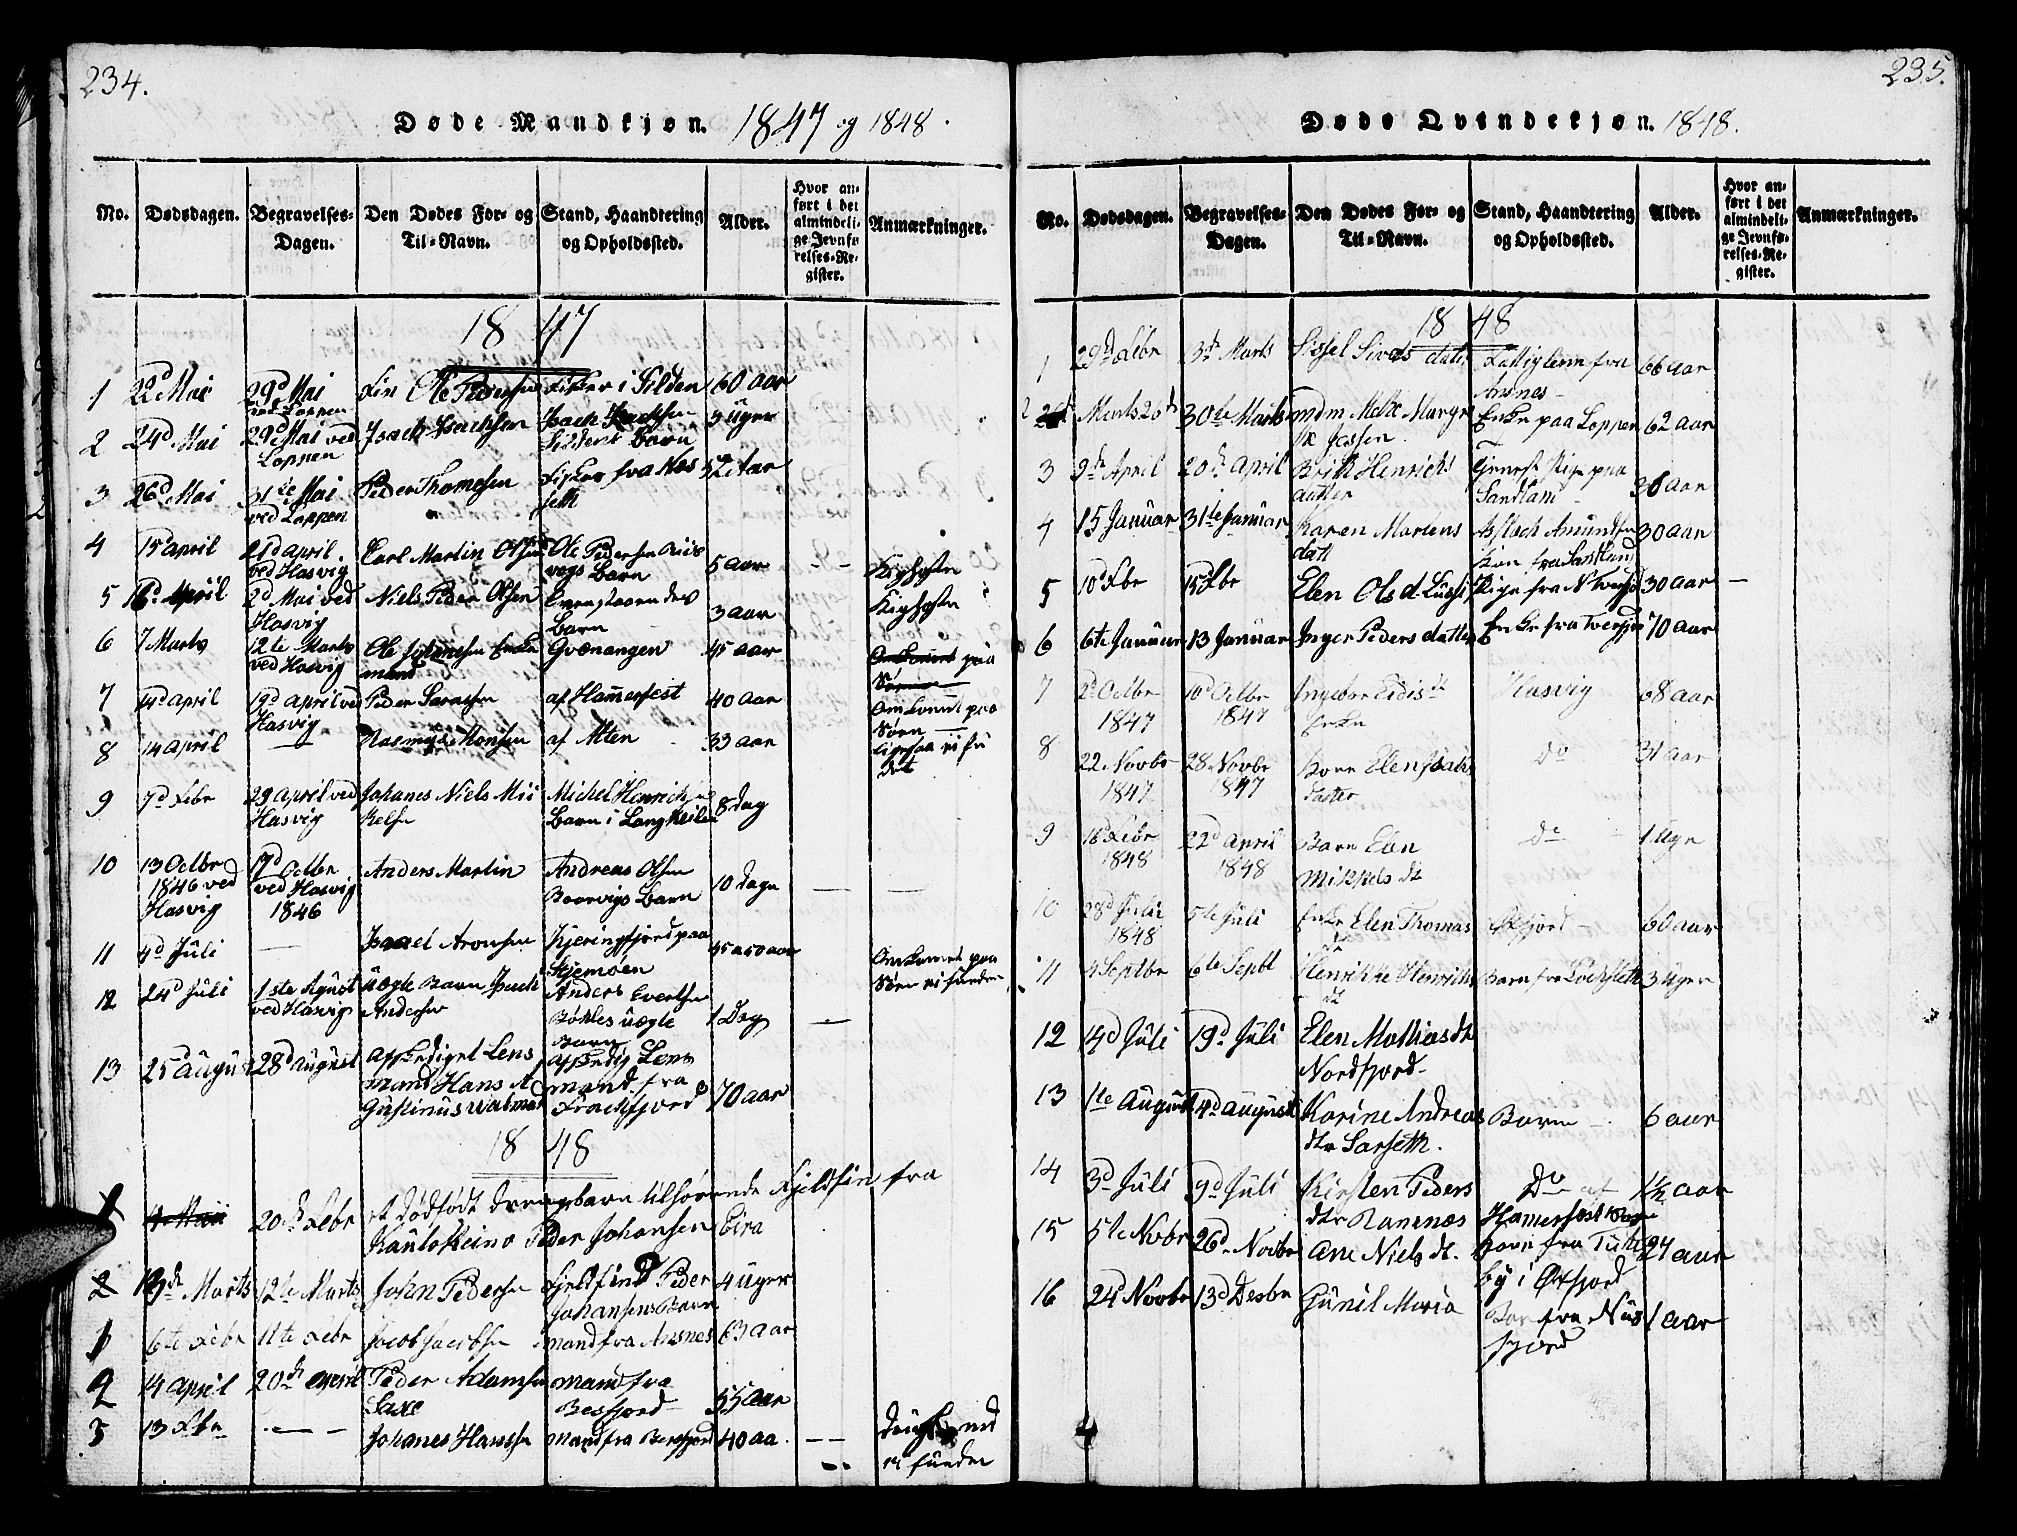 234.
Døde Mandkjøn. 1847 og 1848.
No. Dødsdagen. Begravelses-Dagen. Den Dødes For- og Til-Navn. Stand, Haandtering og Opholdssted. Alder. Hvor anført i det almindelige Jevnførelses-Register. Anmærkninger.
1847
1 22d Mai 29d Mai ved Loppen Fin Ole Pedersen Fisker i Silden 60 aar
2 24d Mai 29d Mai ved Loppen Isach Isachsen Isach Isachsen Sildens Barn 3 uger
3 26d Mai 31te Mai ved Loppen Peder Thomesen Fisker fra 52 Aar
4 15 april 21d april ved Hasvig Carl Martin Olsen Ole Pedersen Riisvogs Barn 5 aar Kighoste
5 16d April 2d Mai ved Hasvig Niels Peder Olsen Barn 3 aar Kighoste
6 7 Marts 12te Marts ved Hasvig Ole Johnsen Enkemand Qvænangen 45 aar Omkommet paa Søen
7 14d april 19d April ved Hasvig Peder Larssen af Hammerfest 40 aar Omkommet paa Søen
8 14 april — Rasmus Monsen af Alten 33 aar
9 7d Febr 29 april ved Hasvig Johanes Niels Mikkelsen Michel Henrichsens Barn i 8 dag
10 13 Octbr 1846 ved Hasvig 17d Octbr ved Hasvig 1846 Anders Martin Andreas Olsen Barn 10 dage — —
11 4d Juli — Israel Aronsen Kjeringfjord paa Stjernøen 45 a 50 aar Omkommet paa Søen ei funden
12 24d Juli 1ste August ved Hasvig uægte Barn Isach Andersen Anders Evertsen uægte Barn 1 Dag —
13 25d august 28d august Afskediget Lensmand Hans Afskedig Lensmand fra 70 aar
1848
1 4 Mai 20de Febr et dødfødt drengebarn tilhørende Fjeldfin fra
Kautokeino Peder Johansen Eira
2 Marts 12te Marts John Pedersen Fjeldfind Peder Johansens Barn 4 uger
1 6te Febr 11te Febr Jacob Jacobsen mand fra Ansnes 63 aar
2 14 april 20de April Peder Adamsen Saxe mand fra Bersfjord 55 aar
3 13 Febr — Johanes Hanssen mand fra Bersfjord 40 aa. — ei funden
235.
Døde Qvindekjøn. 1848.
No. Dødsdagen. Begravelses-Dagen. Den Dødes For- og Til-Navn. Stand, Haandtering og Opholdssted. Alder. Hvor anført i det almindelige Jevnførelses-Register. Anmærkninger.
1848
1 29d Febr 3de Marts Sissel Sivers datter Fattiglem fra Ansnes 66 aar
2 Marts 20de 30te Marts Jessen Enke paa Loppen 62 aar
3 9de April 20de April Henrichs datter Tjenest Pige paa Sandland 36 aar
4 15 Januar 31te Januar Karen Martens datt Aslach Amundsen Kone fra Sandland 30 aar
5 10d Febr 15 Febr Elen Ols d Pige fra 30 aar —
6 6te Januar 13 Januar Inger Peders datter Enke fra 70 aar
7 2d Octbr 1847 10d Octbr 1847 Ingebor Eidis dt Enke Hasvig 68 aar
8 22 Novbr 1847 28 Novbr 1847 Elen Isaks datter do 31 aar
9 16d Febr 1848 22d april 1848 Barn Elen Mikkels dt do 1 Uge
10 28d Juli 1848 5te Juli Enke Elen Thomas dt Øxfjord 60 aar
11 4 Septbr 6te Septbr Henrikke Henriks dt Barn fra 3 uger
12 14d Juli 19d Juli Elen Mathias dt Nordfjord
13 1te August 4d august Karine Andreas dtr Sarseth. Barn 6 aar
14 3d Juli 9d Juli Kirsten Peders dtr Do af 1½ aar
15 5te Novbr 26d Novbr Ane Niels dt. i Øxfjord 24 aar
16 24d Novbr 13d Desbr Gunil Maria fra 1 aar